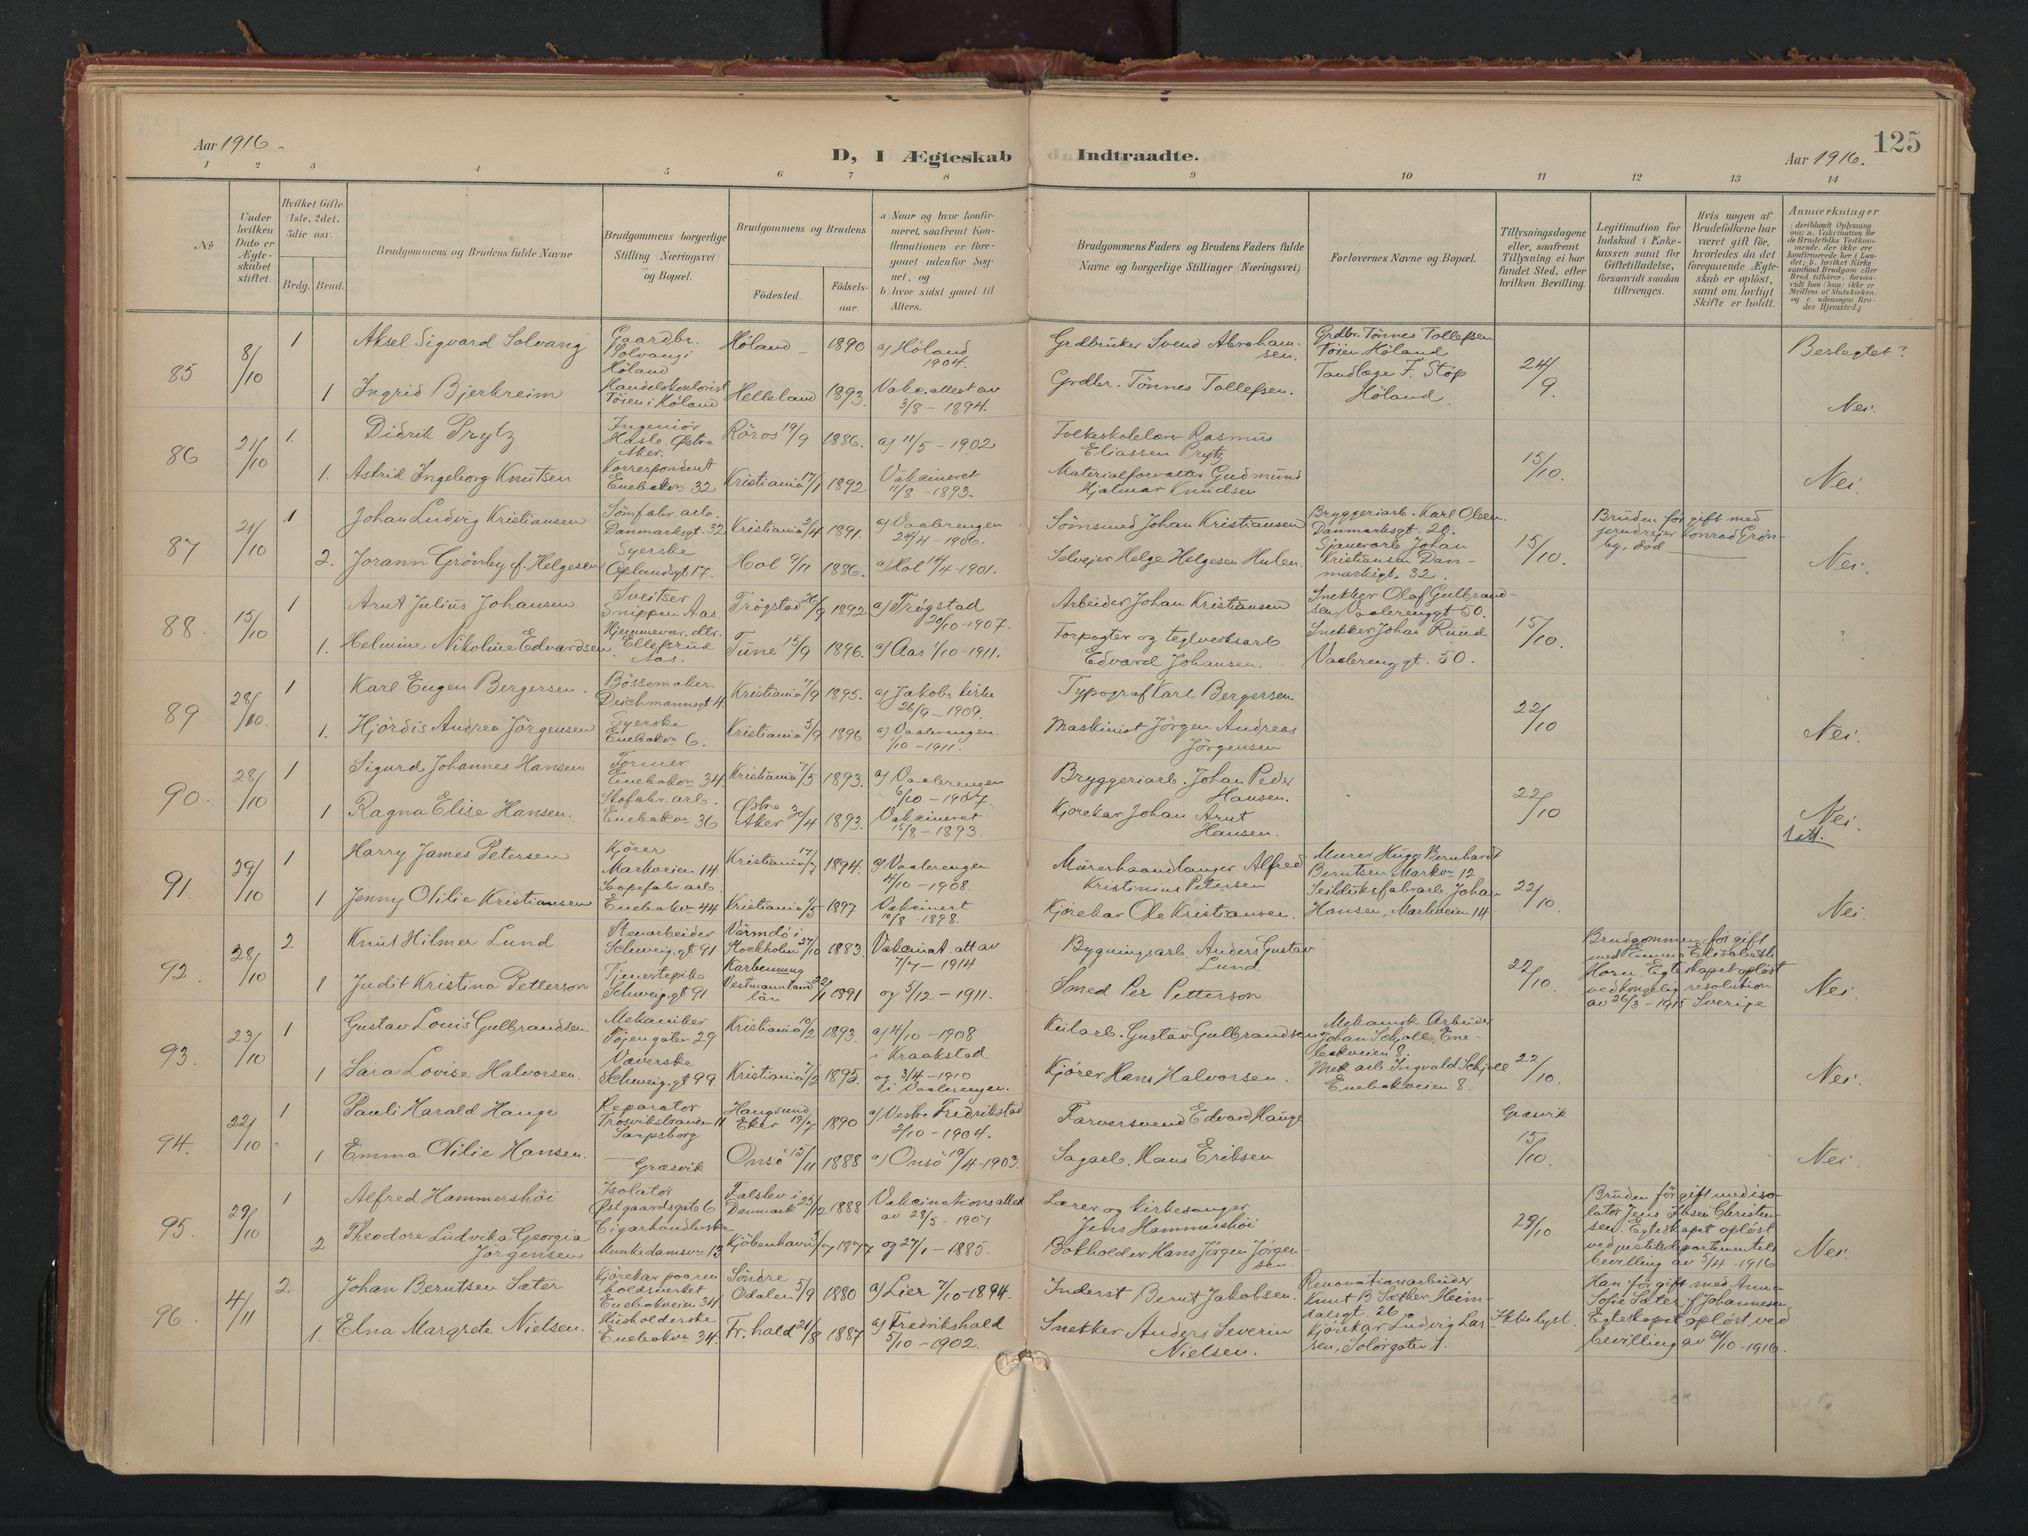 Aar 1916.
D, I Ægteskab Indtraadte.
125
Aar 1916.
1 2 3 4 5 6 7 8 9 10 11 12 13 14
No
Under hvilken Dato er Ægteskabet stiftet.
Hvilket Gifte 1ste, 2det, 3die osv.
Brdg. Brud.
Brudgommens og Brudens fulde Navne
Brudgommens borgerlige Stilling (Næringsvei) og Bopæl.
Brudgommens og Brudens
Fødested.
Fødselsaar.
a) Naar og hvor konfirmeret, saafremt Konfirmationen er foregaaet udenfor Sognet, og
b) hvor sidst gaaet til Alters.
Brudgommens Faders og Brudens Faders fulde Navne og borgerlige Stillinger (Næringsvei)
Forlovernes Navne og Bopæl.
Tillysningsdagene eller, saafremt Tillysning ei har fundet Sted, efter hvilken Bevilling.
Legitimation for Indskud i Enkekassen samt for Giftetilladelse, forsaavidt saadan tiltrænges.
Hvis nogen af Brudefolkene har været gift før, hvorledes da det foregaaende Ægteskab er opløst, samt om lovligt Skifte er holdt.
Anmærkninger
85 8/10 1 Aksel Sigvard Solvang Gaardbr. Solvang i Høland Høland 1890 a) Høland 1904. Grdbruker Svend Abrahamsen. Grdbr. Tønnes Tollefsen Tøien Høland 24/9. Beslegtet?
1 Ingrid Bjerkreim Handelskontorist Tøien i Høland Helleland 1893. Vakc. attest av 3/8 - 1894. Grdbr. Tønnes Tollefsen. Tandlæge F. Støp Høland. Nei.
86 21/10 1. Didrik Prytz Ingeniør Hasle Østre Aker. Røros 19/9 1886. a) 11/5 - 1902 Folkeskolelærer Rasmus Eliassen Prytz 15/10.
1. Astrid Ingeborg Knutsen Korrespondent Enebakvn 32 Kristiania 17/1 1892 Vakcineret 11/8 - 1893. Materialforvalter Gudmund Hjalmar Knudsen Nei.
87 21/10 1 Johan Ludvig Kristiansen Sømfabr. arb. Danmarksgt. 32 Kristiania 2/4 1891. a) Vaalerengen 24/4 - 1906. Sømsmed Johan Kristiansen Bryggeriarb. Karl Olsen Danmarksgt. 20. 15/10. Bruden før gift med Konrad Grønby, død
2. Jorann Grønby f. Helgesen Syerske Oplandsgt 17. Hol 9/11 1886. a) Hol 14/4 - 1901. Selveier Helge Helgesen Hulen. Sjauerarb Johan Kristiansen Danmarksgt. 32. Nei.
88. 15/10 1 Arnt Julius Johansen Sveitser Snippen Aas Trøgstad 26/9 1892 a) Trøgstad 20/10 - 1907. Arbeider Johan Kristiansen Snekker Olaf Gulbrandsen Vaalerenggt 50. 15/10.
1. Helmine Nikoline Edvardsen Ellefsrud Aas. Tune 15/9 1896. a) Aas 1/10 - 1911. Forpagter og teglverksarb Edvard Johansen. Snekker Johan Ruud Vaalerenggt. 50. ?
89 28/10 1 Karl Eugen Bergersen. Bøssemaker. Deichmannsgt 4. Kristiania 7/9 1895. a) Jakobs kirke 26/9 - 1909. Typograf Karl Bergersen 22/10
1. Hjördis Andrea Jörgensen Syerske Enebakvn 6. Kristiania 5/9 1896 a) Vaalerengen. 1/10 - 1911. Maskinist Jörgen Andreas Jörgensen Nei.
90. 28/10 1 Sigurd Johannes Hansen Former Enebakvn 34 Kristiania 7/5 1893. a) Vaalerengen 6/10 - 1907. Bryggeriarb. Johan Peder Hansen. 22/10
1 Ragna Elise Hansen. Skofabr. arb. Enebakvn 36 Østre Aker 30/4 1893. Vakcineret 15/8 - 1893. Kjørekar Johan Arnt Hansen. Nei.
91. 29/10 1 Harry James Petersen Kjører Markveien 14 Kristiania 17/7 1894. a) Vaalerengen 4/10 - 1908. Murerhaandlanger Alfred Kristinius Petersen Murer Hugo Bernhardt Berntsen Markvn 12 22/10.
1 Jenny Otilie Kristiansen Saapefabr. arb. Enebakvn 44 Kristiania 7/5 1897 Vakcinert 10/8 - 1898. Kjørekar Ole Kristiansen. Seilduksfabrarb. Johan Hansen, Markveien 14 Nei.
92. 28/10 2. Knut Hilmer Lund Stenarbeider Schweig.gt 91 Värmdö i Stockholm 27/10 1883. Vakcinat. att av 7/7 - 1914 Bygningsarb. Anders Gustav Lund 22/10. Brudgommen før gift med Emma Elisabeth Horn. Egteskapet opløst ved kongelig resolution av 26/3 - 1915 Sverige
1 Judit Kristina Petterson Tjenestepike Schweig.gt 91 Karbenning Vestmannland län 22/1 1891 og 5/12 - 1911. Smed Per Petterson Nei.
93. 23/10 1 Gustav Louis Gulbrandsen Mekaniker Töjengaten 29 Kristiania 10/2 1893. a) 4/10 - 1908 i Kraakstad Keilarb. Gustav Gulbrandsen Mekanisk Arbeider Johan Schjoll Enebakveien 8. 22/10.
1 Sara Lovise Halvorsen. Væverske Schweig.gt 99 Kristiania 7/2 1895. og 3/4 - 1910 i Vaalerengen. Kjører Hans Halvorsen. Mek arb. Ingvald Schjoll Enebakveien 8. Nei.
94. 22/10 1 Pauli Harald Hauge Reparatør Trosvikstranden 11 Sarpsborg Haugsund Eker 19/7 1890 a) Vestre Fredrikstad 2/10 - 1904. Farversvend Edvard Hauge Græsvik 15/10.
1 Emma Otilie Hansen. — Græsvik Onsö 15/11 1888 a) Onsö 19/4 - 1903. Sagarb. Hans Eriksen Nei.
95. 29/10 1 Alfred Hammershöi Isolatør Østgaardsgate 6 Falslev i Danmark 25/12 1888 Vakcinationsattest av 28/5 - 1907 Lærer og kirkesanger Jens Hammershöi 29/10 Bruden før gift med isolatør Jens Ibsen Christensen. Egteskapet opløst ved justitsdepartementets bevilling av 5/4 - 1916
2 Theodore Ludvika Georgia Jørgensen Cigarhandlerske Munkedamsvn 13 Kjöbenhavn 3/7 1877 og 27/1 - 1885. Bokholder Hans Jørgen Jørgensen. Nei.
96. 4/11 2 Johan Berntsen Sæter Kjørekar paa renholdsverket Enebakveien 34 Söndre Odalen 5/9 1880 a) Lier 7/10 - 1894. Inderst Bernt Jakobsen. Renovationsarbeider Knut B Sæther, Heimdalsgt. 26 Ikke lyst. Han før gift med Anna Sofie Sæter f Johannesen Egteskapet opløst ved bevilling av 21/10 - 1916.
1. Elna Margrete Nielsen. Husholderske Enebakvn 34. Fr.hald 21/8 1887 a) Fredrikshald 5/10 - 1902. Snekker Anders Severin Nielsen. Kjørekar Ludvig Larsen, Solörgaten 1.